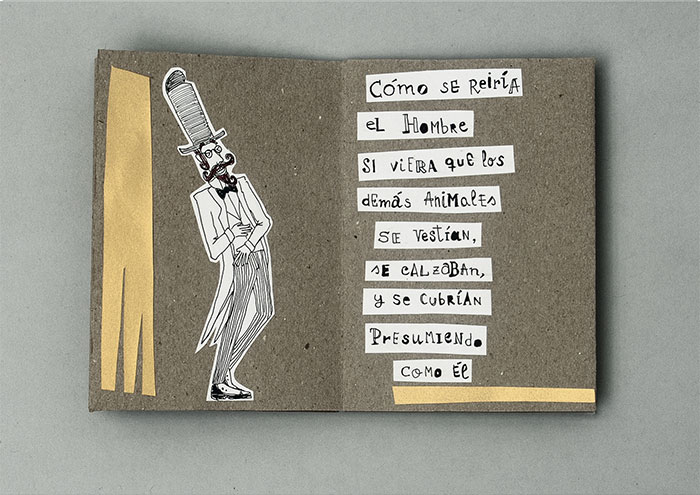 Cómo se reiría
el Hombre
si viera que los
demás animales
se vestían,
se calzaban,
y se cubrían
Presumiendo
como Él